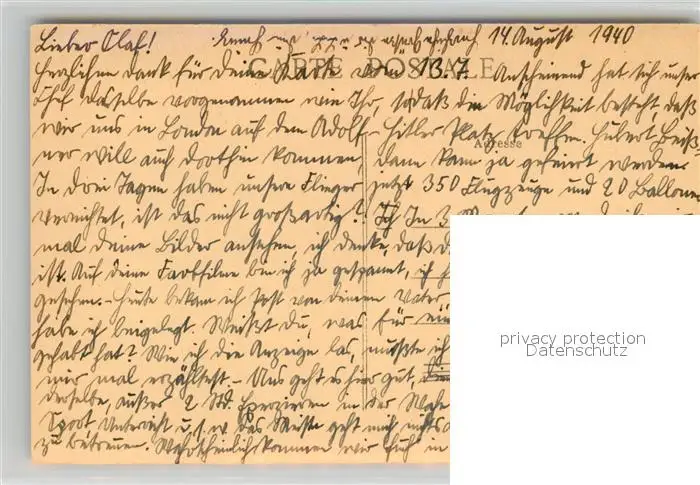 Lieber Olaf! 14 August 1940
CARTE POSTALE
Herzlichen dank für deine Karte vom 13.7. Anscheinend hat sich unser
Chef dasselbe vorgenommen wie Ihr, sodaß die Möglichkeit besteht, daß
wir uns in London auf dem Adolf-Hitler Platz treffen. Hubert
Adresse
will auch dorthin kommen, dann kann ja gefeiert werden.
In drei Tagen haben unsere Flieger jetzt 350 Flugzeuge und 20 Ballone
vernichtet, ist das nicht großartig? In 3
mal deine Bilder ansehen, ich denke, daß
ist. Auf deine Farbfilme bin ich ja gespannt, ich
gesehen. – Heute bekam ich Post von deinem Vater
habe ich beigelegt. Weißt du, was für
gehabt hat? Wie ich die Anzeige las, mußte ich
mir mal erzähltest. – Uns geht es hier gut,
derselbe, außer 2 Std. Exerzieren in der Woche
Sport, Unterricht u.s.w. das Meiste geht mich nichts
zu betreuen. Wahrscheinlich kommen wir früh in
privacy protection
Datenschutz